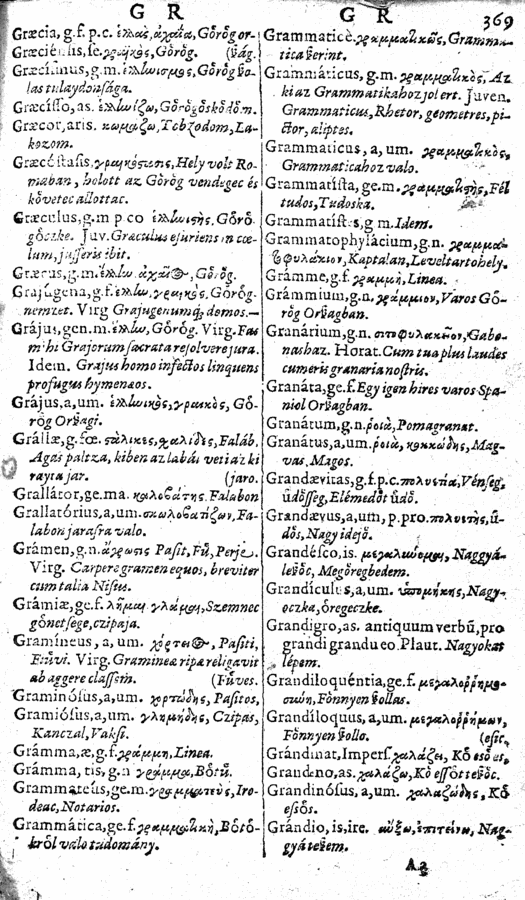 G R
Græcia, g.f. p.c. ἑλλὰς, ἀχαΐα, Gôrôg or-
Græciénsis, se, γραικὸς, Gôrôg. (ſág.
Græcínus, g.m. Gôrôg ſo-
las tulaydonſága.
Græciſſo, as. ἑλλωίζω, Gôrôgôskôdôm.
Græcor, aris. κωμάζω, Tobzodom, La-
kozom.
Græcóſtaſis, Hely volt Ro-
maban, holott az Gôrôg vendegec és
kôvetec allottac.
Græculus, g.m p co Gôrô-
gôczke. Juv. Græculus eſuriens in cœ-
lum, juſſeris ibit.
Græcus, g.m. Gôrôg.
Grajúgena, g.f. γραικὸς, Gôrôg-
nemzet. Virg Grajugenumq; domos.—
Grájus, gen.m. Gôrôg. Virg. Fas
mihi Grajorum ſacrata reſolvere jura.
Idem. Grajus homo infectos linquens
profugus hymenæos.
Grájus, a, um. ἑλλωικὸς, γραικὸς, Gô-
rôg Orſagi.
Grállæ, g.fœ. Faláb.
Agas paltza, kiben az labái veti az ki
rayta jar. (jaro.
Grallátor, ge.ma. Falabon
Grallatórius, a, um. Fa-
labon jaraſra valo.
Grámen, g.n. ἄγρωστις Paſit, Fû, Perje.
Virg. Carpere gramen equos, breviter
cum talia Niſus.
Grámiæ, ge.f. λῆμαι γλάμαι, Szemnec
gônetſege, czipaja.
Gramíneus, a, um. Paſiti,
Fûvi. Virg. Gramineâ ripa religavit
ab aggere claſſem. (Fûves.
Graminóſus, a, um. χορτώδης, Paſitos,
Gramióſus, a, um. Czipas,
Kanczal, Vakſi.
Grámma, æ, g.f. γράμμη, Linea.
Grámma, tis, g.n γράμμα, Bôtû.
Grammateus, ge.m. γραμματεὺς, Iro-
deac, Notarios.
Grammática, ge.f. γραμματικὴ, Bôtô-
krôl valo tudomány.
G R 369
Grammaticè. γραμματικῶς, Gramma-
tica ſerint.
Grammáticus, g.m. γραμματικὸς, Az
ki az Grammatikahoz jol ert. Juven.
Grammaticus, Rhetor, geometres, pi-
ctor, aliptes.
Grammaticus, a, um. γραμματικὸς,
Grammaticahoz valo.
Grammatíſta, ge.m. γραμματιστὴς, Fél
tudos, Tudoska.
Grammatíſtes, g m. Idem.
Grammatophylácium, g.n. γραμμα-
τοφυλάκιον, Kaptalan, Leveltartohely.
Grámme, g.f. γραμμὴ, Linea.
Grámmium, g.n, γράμμιον, Varos Gô-
rôg Orſagban.
Granárium, g.n. Gabo-
nas haz. Horat. Cum tua plus laudes
cumeris granaria noſtris.
Granáta, ge.f. Egy igen hires varos Spa-
niol Orſagban.
Granátum, g.n. ῥοιὰ, Pomagranat.
Granátus, a, um. ῥοιὰ, κοκκώδης, Mag-
vas, Magos.
Grandævitas, g.f. p.c. Vénſeg,
ûdôſſeg, Elémedôt ûdô.
Grandævus, a, um, p.pro. û-
dôs, Nagy idejô.
Grandéſco, is. μεγαλύνομαι, Naggyá-
leſôc, Megôregbedem.
Grandículus, a, um. ὑπομήκης, Nagy-
oczka, ôregeczke.
Grandigro, as. antiquum verbû, pro
grandi grandu eo. Plaut. Nagyokat
lépem.
Grandiloquéntia, ge.f. μεγαλοῤῥημο-
σύνη, Fônnyen ſollas.
Grandíloquus, a, um. μεγαλοῤῥήμων,
Fônnyen ſollo. (eſic.
Grándinat, Imperſ. χαλάζει, Kô esô es,
Grandino, as. χαλάζω, Kô eſſôt teſôc.
Grandinóſus, a, um. χαλαζώδης, Kô
eſsôs.
Grándio, is, ire. αὔξω, ἐπιτείνω, Nag-
gyá teſem.